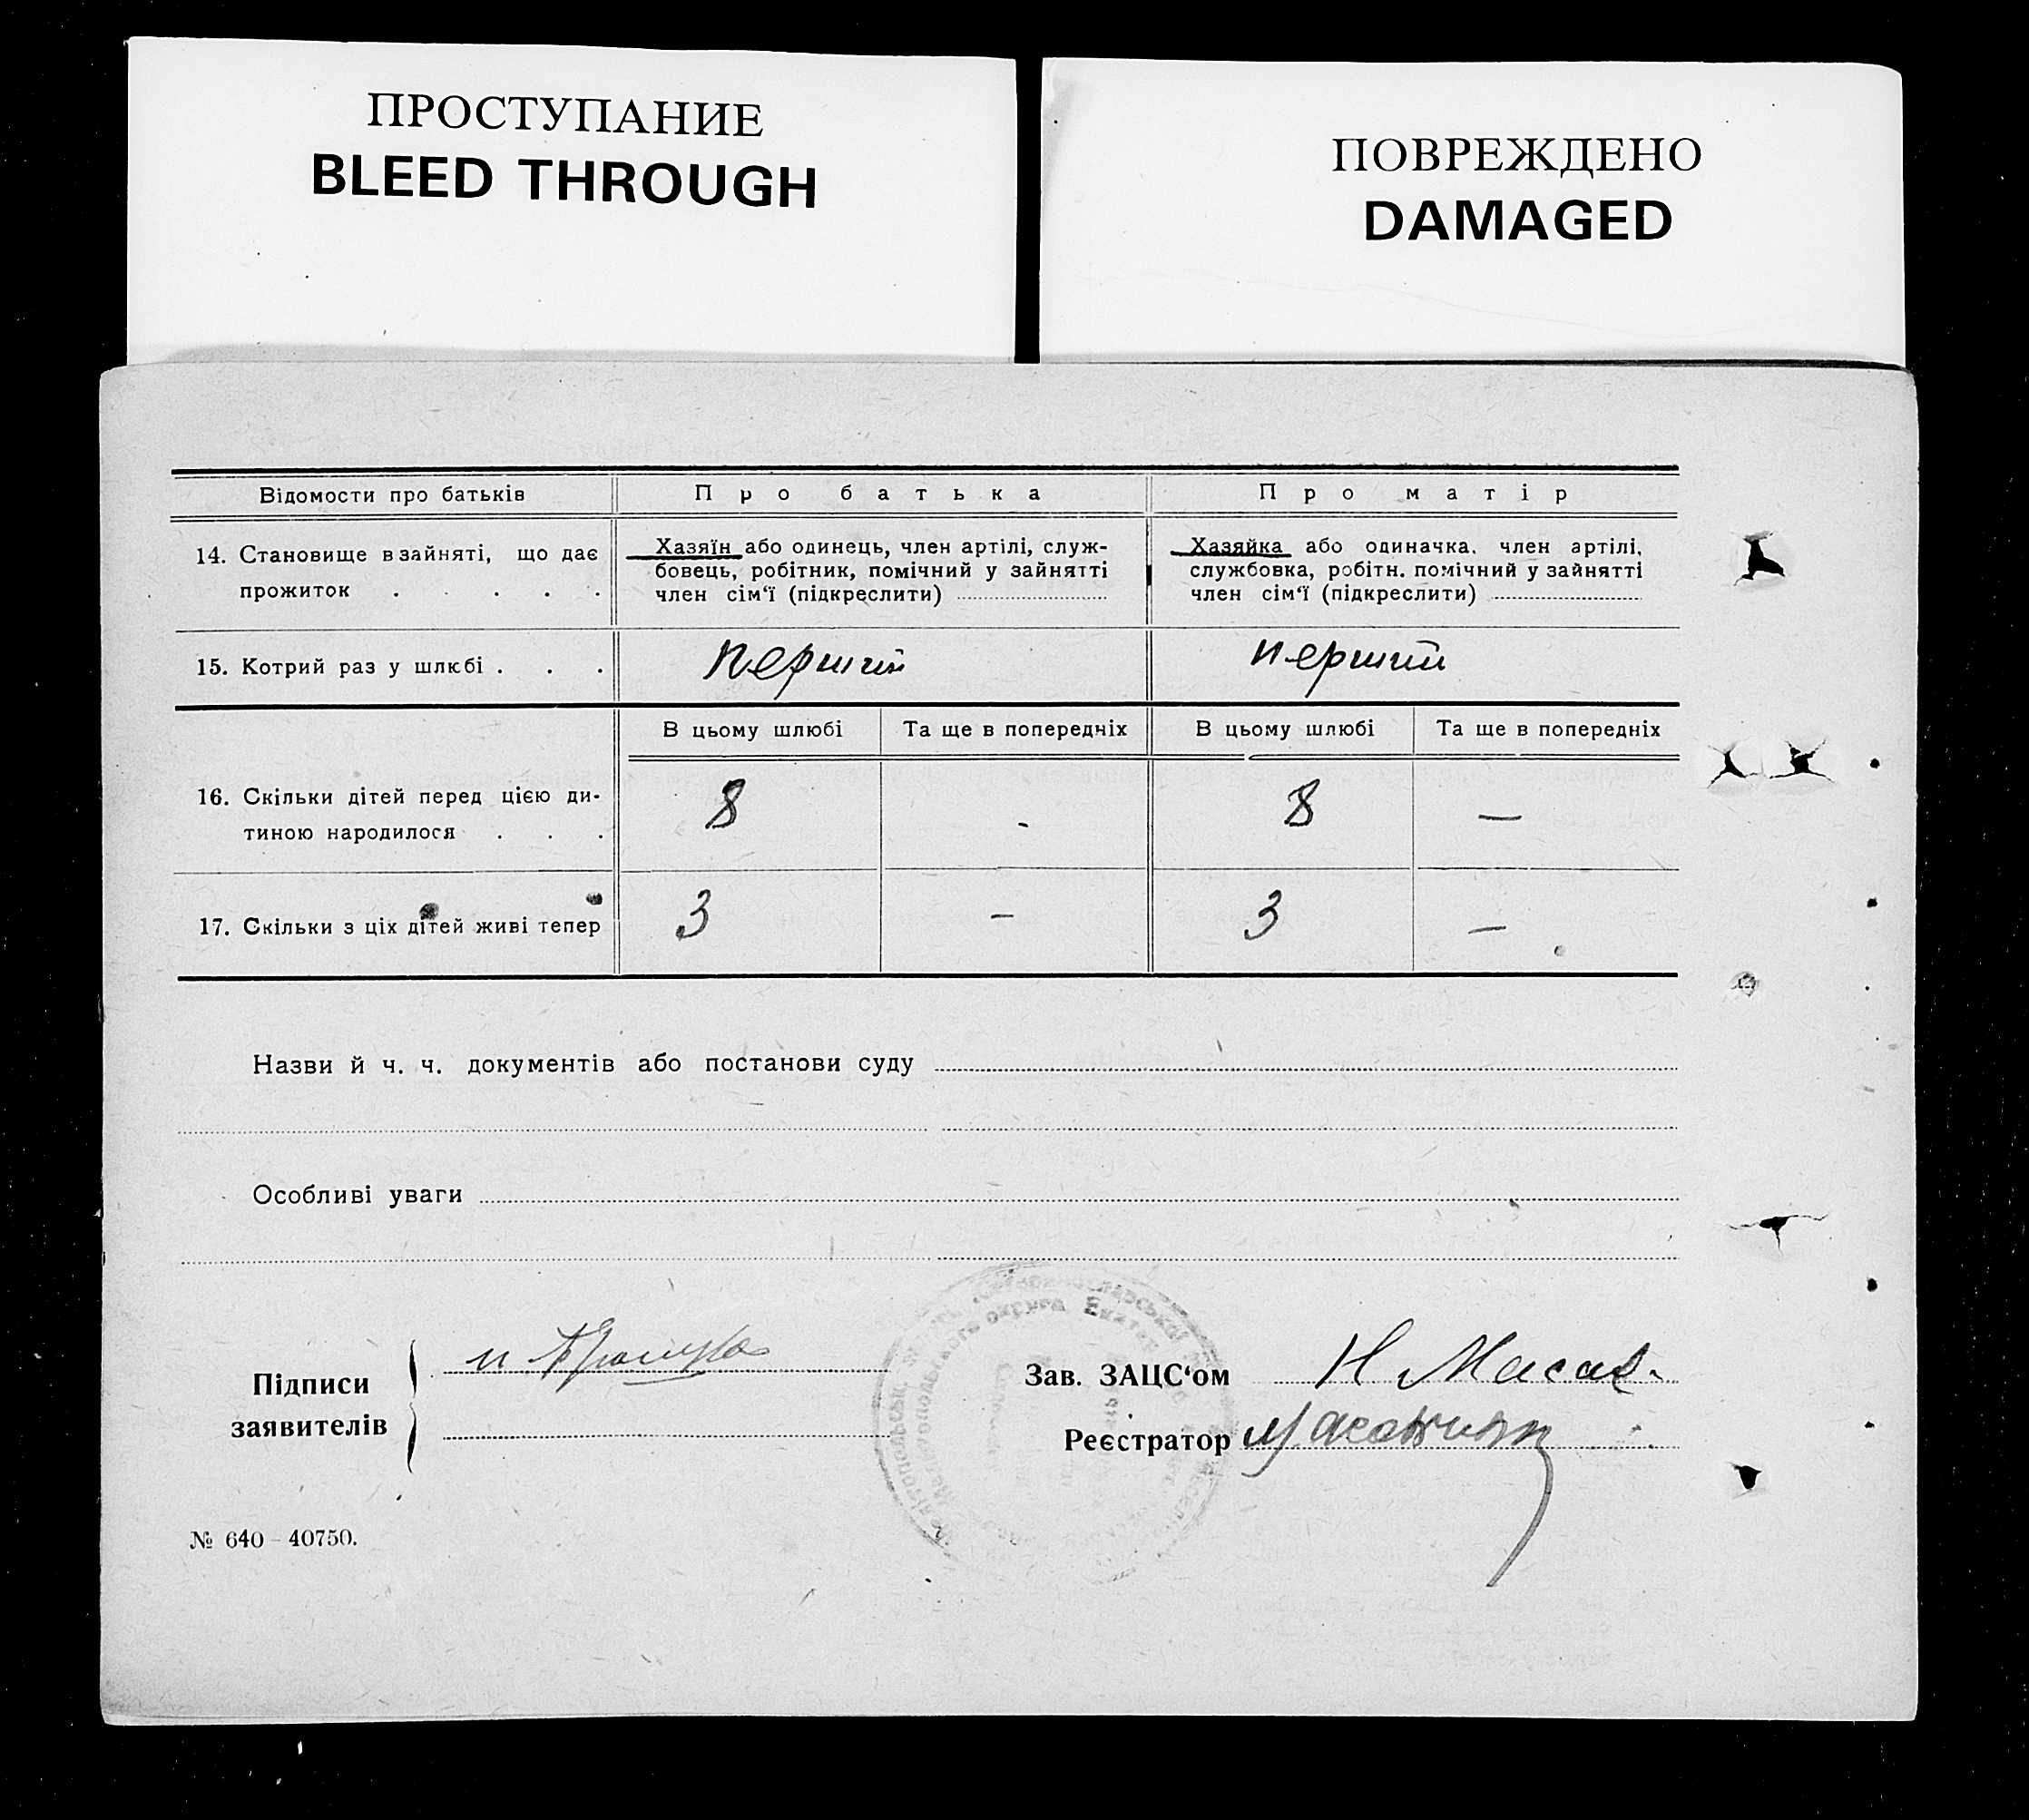 ПРОСТУПАНИЕ
BLEED THROUGH
ПОВРЕЖДЕНО
DAMAGED
Відомости про батьків
Про батька
Про матір
14. Становище в зайняті, що дає
прожиток . . . . .
Хазяїн або одинець, член артілі, служ-
бовець, робітник, помічний у зайнятті
член сім‘ї (підкреслити)
Хазяйка або одиначка. член артілі,
службовка, робітн. помічний у зайнятті
член сім‘ї (підкреслити)
15. Котрий раз у шлюбі . . .
перший
перший
В цьому шлюбі
Та ще в попередніх
В цьому шлюбі
Та ще в попередніх
16. Скільки дітей перед цією ди-
тиною народилося . . .
8
-
8
—
17. Скільки з ціх дітей живі тепер
3
–
3
—
Назви й ч. ч. документів або постанови суду
Особливі уваги
Підписи
заявителів
Зав. ЗАЦС‘ом
Н
Реєстратор
округа
№ 640 - 40750.